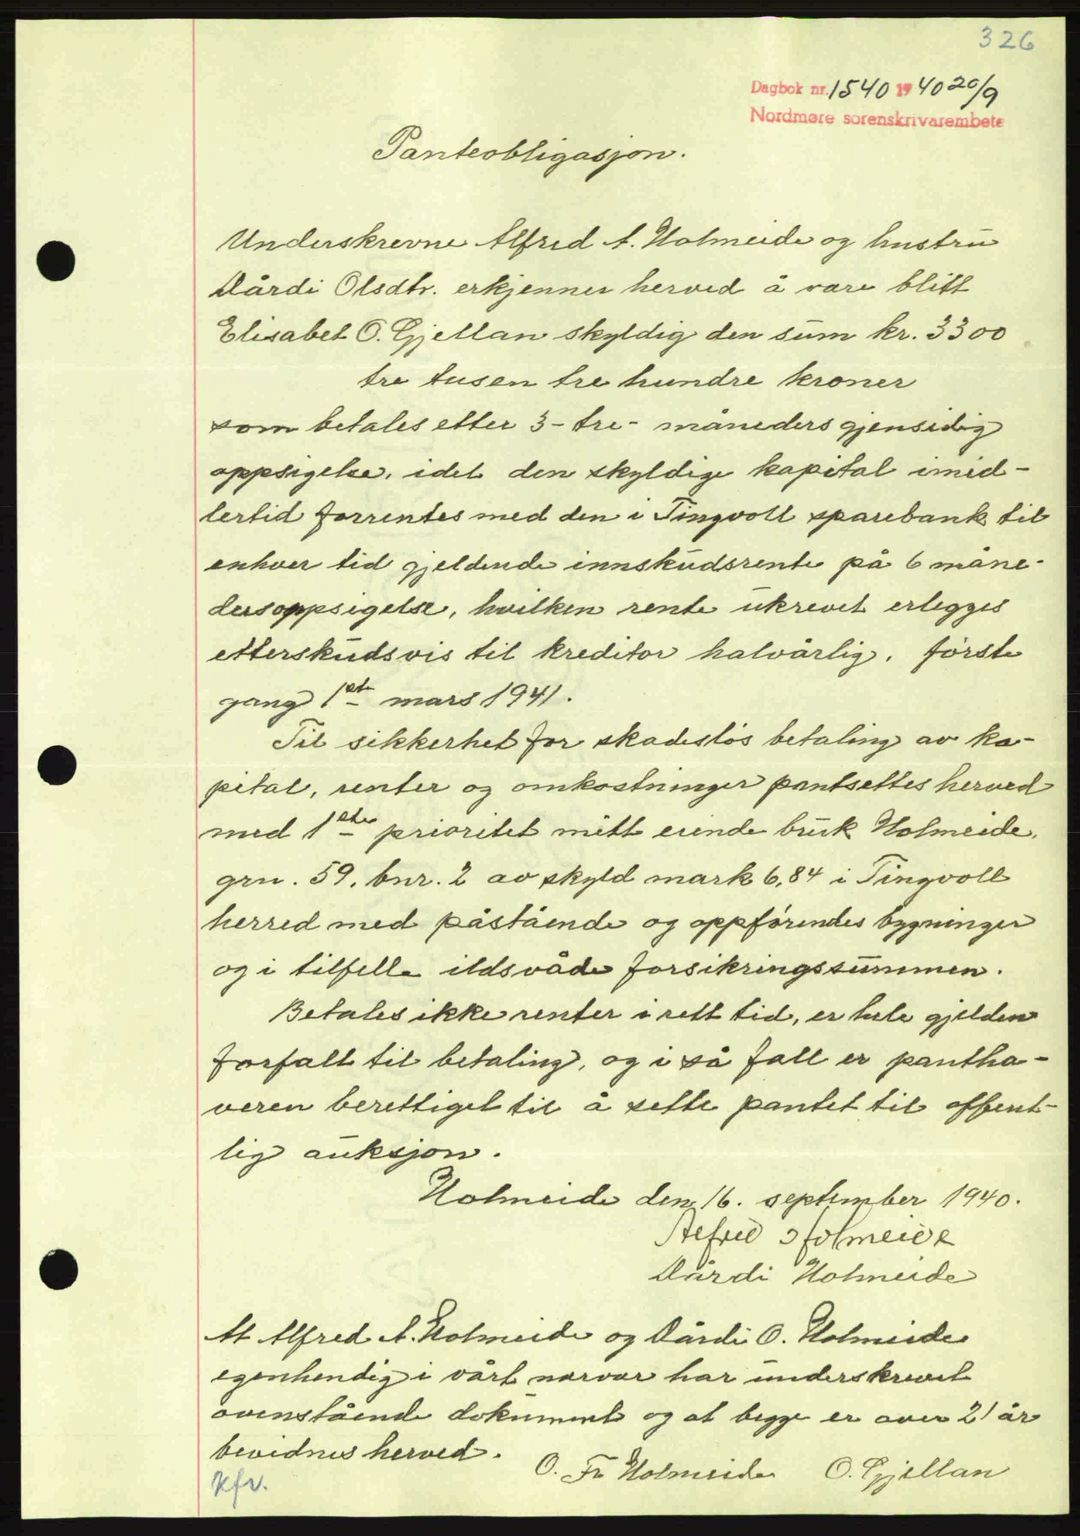 326
Dagbok nr. 1540 1940 20/9
Nordmøre sorenskrivarembete
Panteobligasjon.
Underskrevne Alfred A. Holmeide og hustru
Dårdi Olsdtr. erkjenner herved å være blitt
Elisabet O. Gjellan skyldig den sum kr. 3300
tre tusen tre hundre kroner
som betales etter 3 - tre - måneders gjensidig
oppsigelse, idet den skyldige kapital imid-
lertid forrentes med den i Tingvoll sparebank til
enhver tid gjeldende innskudsrente på 6 måne-
dersoppsigelse, hvilken rente ukrevet erlegges
etterskudsvis til kreditor halvårlig, første
gang 1ste mars 1941.
Til sikkerhet for skadesløs betaling av ka-
pital, renter og omkostninger pantsettes herved
med 1ste prioritet mitt eiende bruk Holmeide,
grn. 59, bnr. 2 av skyld mark 6,84 i Tingvoll
herred med påstående og oppførendes bygninger
og i tilfelle ildsvåde forsikringssummen.
Betales ikke renter i rett tid, er hele gjelden
forfalt til betaling, og i så fall er pantha-
veren berettiget til å sette pantet til offent-
lig auksjon.
Holmeide den 16. september 1940.
Alfred Holmeide
Dårdi Holmeide
At Alfred A. Holmeide og Dårdi O. Holmeide
egenhendig i vårt nærvær har underskrevet
ovenstående dokument og at begge er over 21 år
bevidnes herved.
O. Fr Holmeide O. Gjellan
kfr.